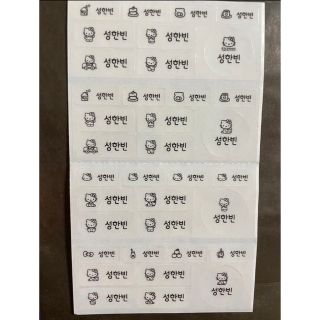 성한빈 성한빈 성한빈 성한빈
성한빈 성한빈 성한빈
성한빈 성한빈
성한빈 성한빈 성한빈 성한빈
성한빈 성한빈 성한빈
성한빈 성한빈
성한빈 성한빈 성한빈 성한빈
성한빈 성한빈 성한빈
성한빈 성한빈
성한빈 성한빈 성한빈 성한빈
성한빈 성한빈 성한빈
성한빈 성한빈